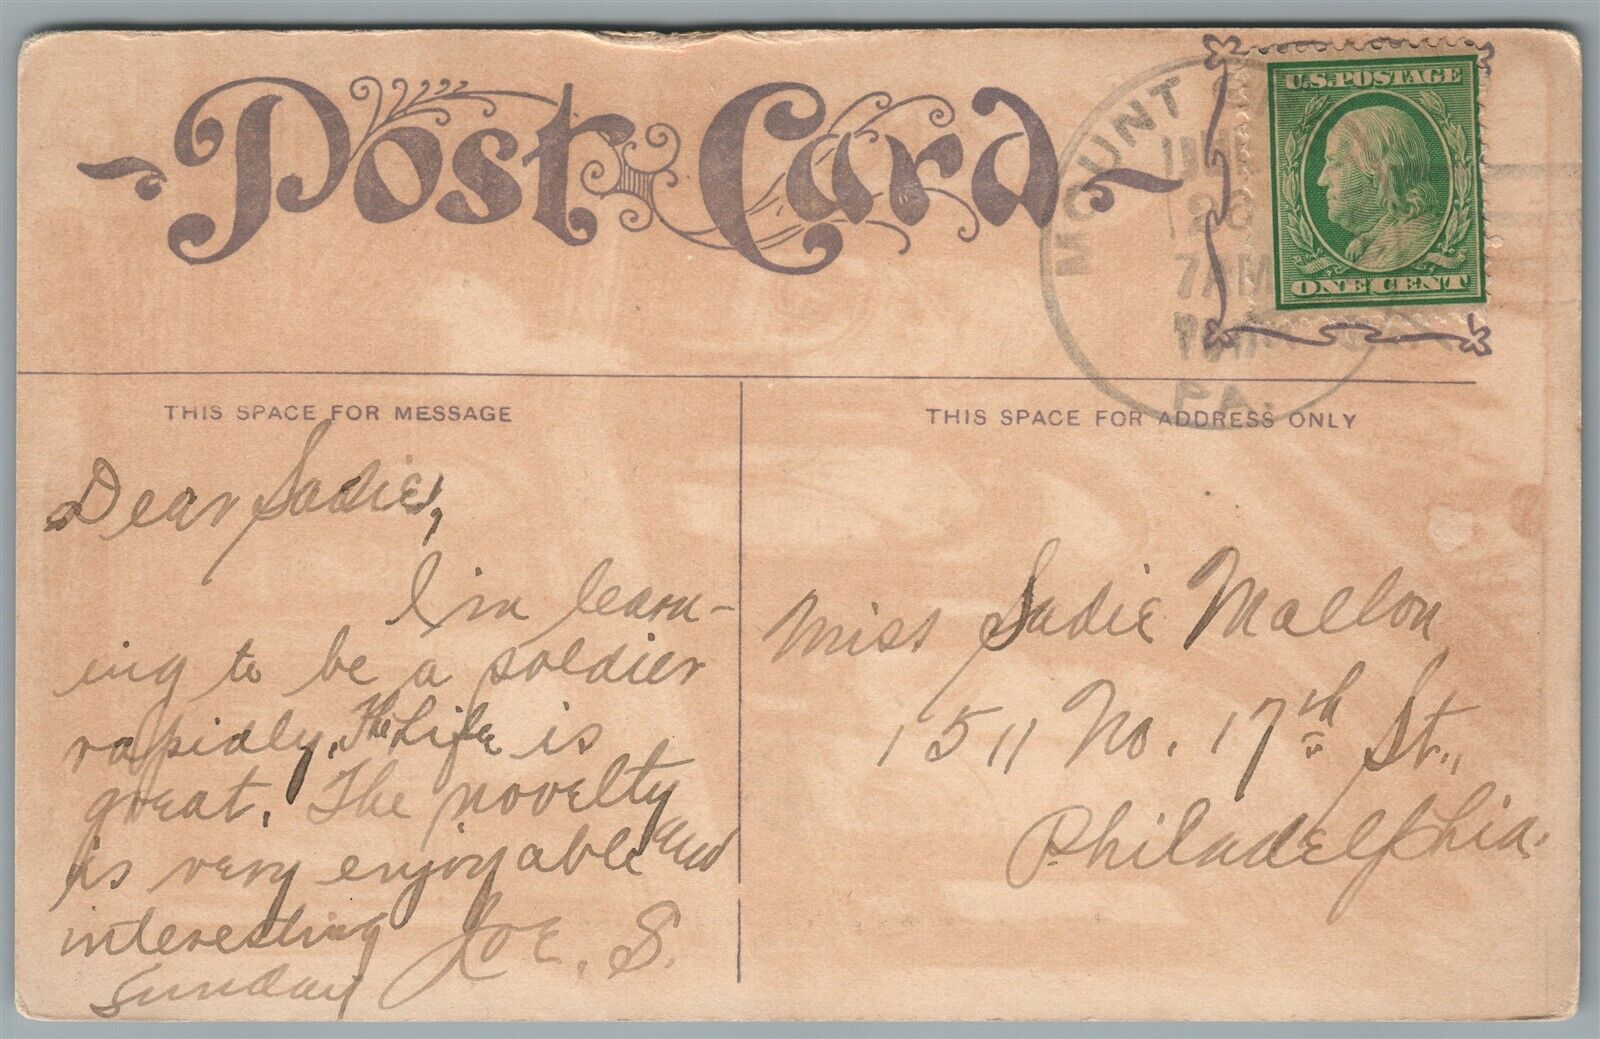 Post Card
U.S. POSTAGE
ONE CENT
MOUNT
26
7 AM
PA.
THIS SPACE FOR MESSAGE
THIS SPACE FOR ADDRESS ONLY
Dear Sadie,
I'm learn-
ing to be a soldier
rapidly. The Life is
great. The novelty
is very enjoyable and
interesting
Sunday Joe. S.
Miss Sadie Mallon
1511 No. 17th St.,
Philadelphia.